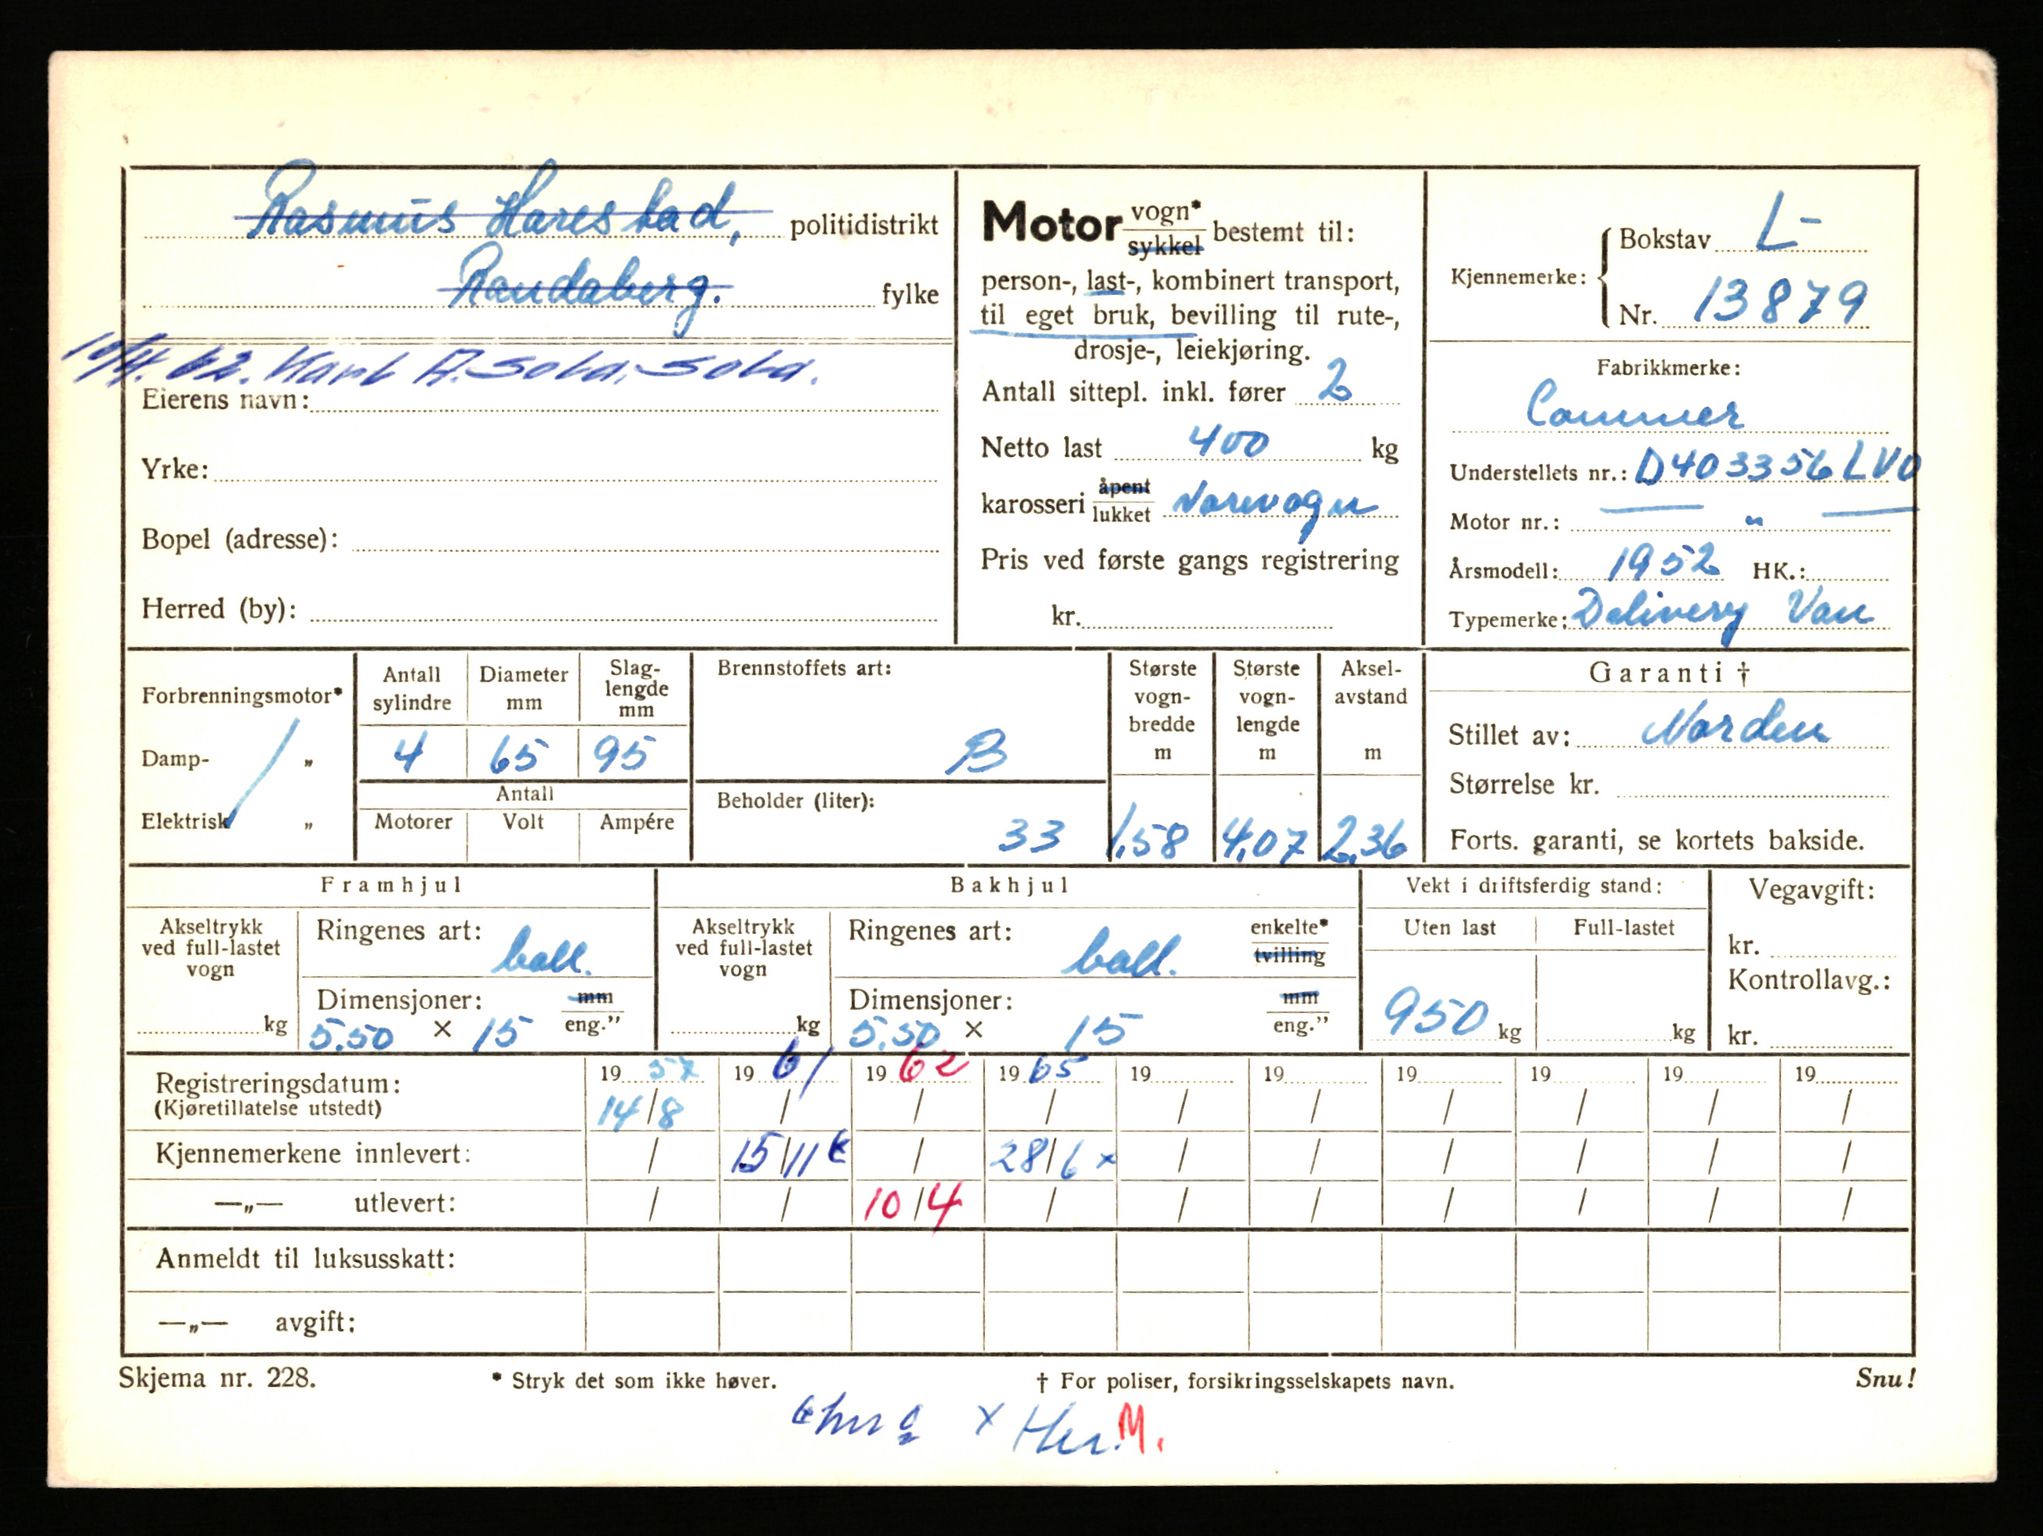 Rasmus Harestad, politidistrikt
Randaberg. fylke
10/4.62. Karl A. Sola. Sola.
Eierens navn:
Yrke:
Bopel (adresse):
Herred (by):
Motor vogn* sykkel bestemt til:
person-, last-, kombinert transport,
til eget bruk, bevilling til rute-,
drosje-, leiekjøring.
Antall sittepl. inkl. fører 2
Netto last 400 kg
karosseri åpent lukket Varevogn
Pris ved første gangs registrering
kr.
Kjennemerke: { Bokstav L-
Nr. 13879
Fabrikkmerke:
Commer
Understellets nr.: D403356LVO
Motor nr.: "
Årsmodell: 1952 HK.:
Typemerke: Delivery Van
Forbrenningsmotor*
Damp- "
Elektrisk "
Antall sylindre
Diameter mm
Slaglengde mm
4 65 95
Antall
Motorer Volt Ampére
Brennstoffets art:
B
Beholder (liter):
33
Største vogn-bredde m
1,58
Største vogn-lengde m
4,07
Aksel-avstand m
2,36
Garanti †
Stillet av: Norden
Størrelse kr.
Forts. garanti, se kortets bakside.
Framhjul
Akseltrykk ved full-lastet vogn
kg
Ringenes art: ball.
Dimensjoner: mm eng."
5.50 × 15
Bakhjul
Akseltrykk ved full-lastet vogn
kg
Ringenes art: ball. enkelte* tvilling
Dimensjoner: mm eng."
5.50 × 15
Vekt i driftsferdig stand:
Uten last Full-lastet
950 kg kg
Vegavgift:
kr.
Kontrollavg.:
kr.
Registreringsdatum: 19 57 19 61 19 62 19 65 19 19 19 19 19 19
(Kjøretillatelse utstedt) 14/8 / / / / / / / / /
Kjennemerkene innlevert: / 15/11 / 28/6 x / / / / / /
—„— utlevert: / / 10/4 / / / / / / /
Anmeldt til luksusskatt:
—„— avgift:
Skjema nr. 228. * Stryk det som ikke høver. † For poliser, forsikringsselskapets navn. Snu!
x M.